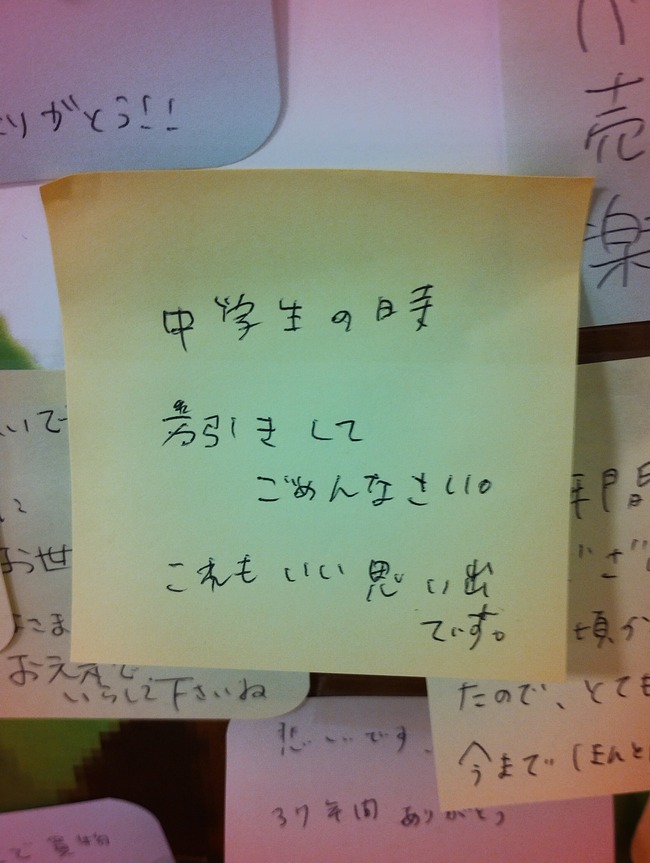 りがとう!!
売
楽
中学生の時
万引きして
ごめんなさい。
これもいい思い出
です。
いで
お世
にま
お元気で
いらして下さいね
年間
ござ
頃か
たので、とても
今まで ほんと
悲しいです、
37年間 ありがとう
で買物